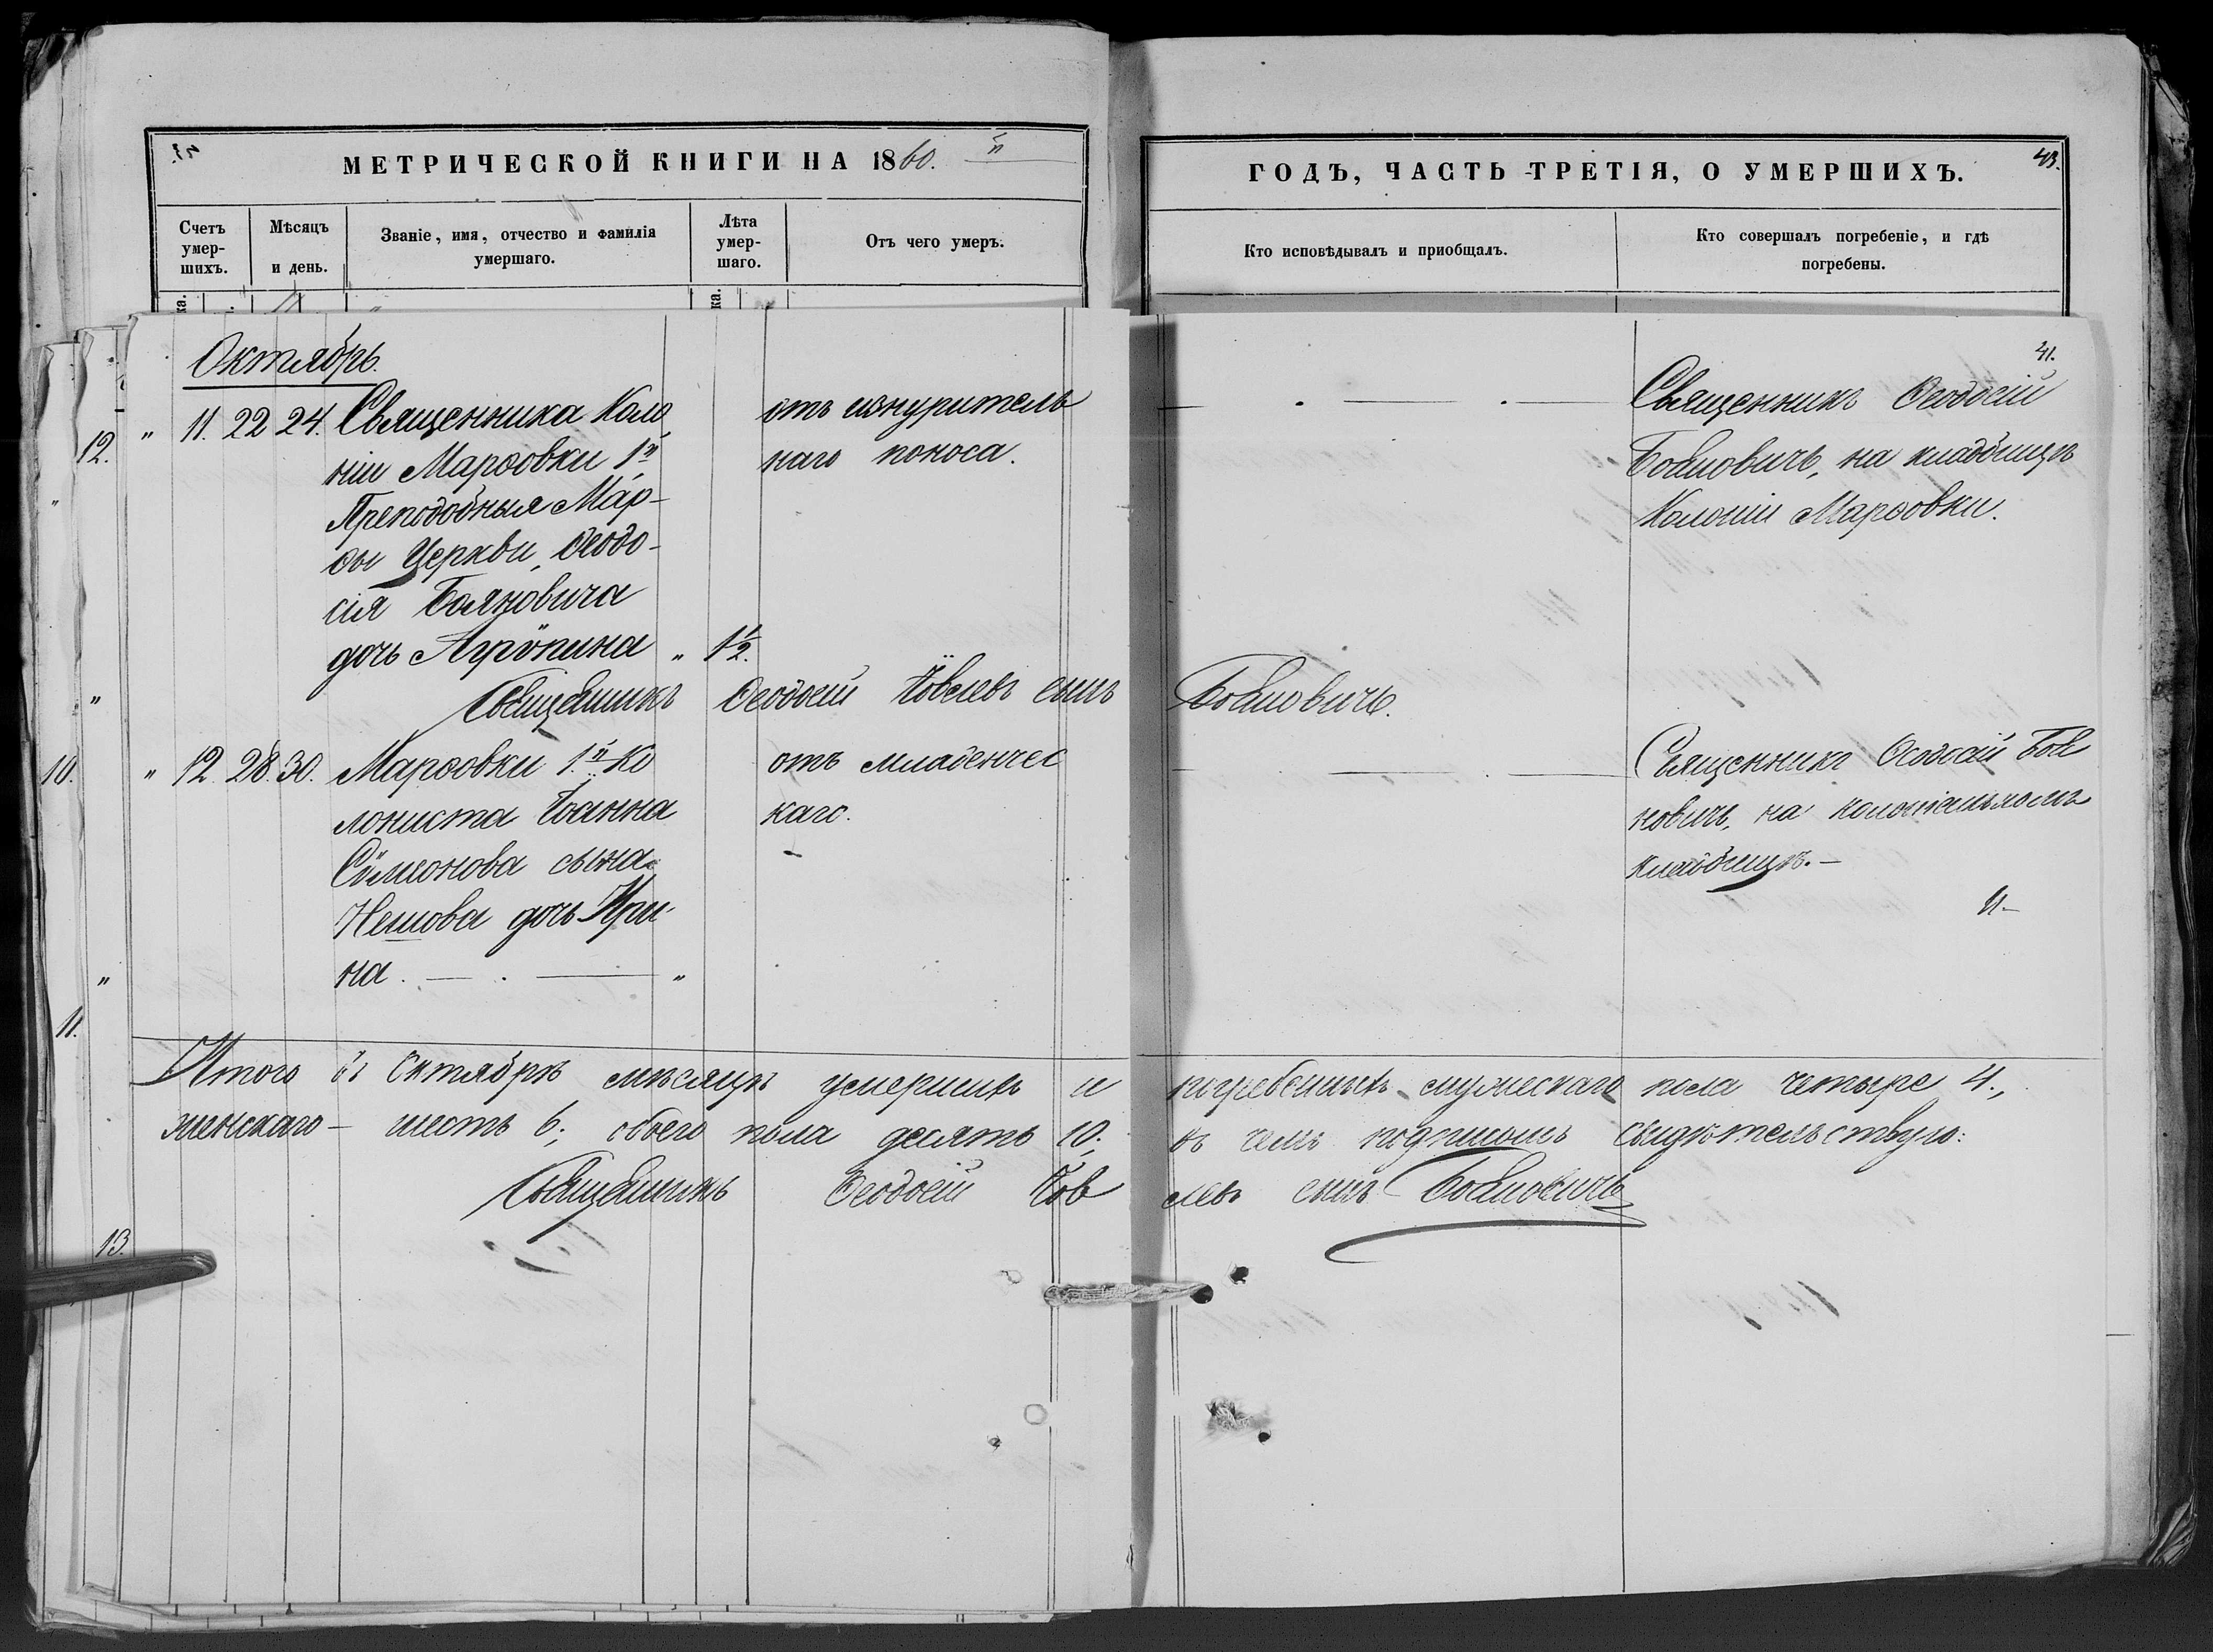 МЕТРИЧЕСКОЙ КНИГИ НА 1860. й
ГОДЪ, ЧАСТЬ ТРЕТІЯ, О УМЕРШИХЪ. 43.
Счетъ умер-шихъ.
Мѣсяцъ и день.
Званіе, имя, отчество и фамилія умершаго.
Лѣта умер-шаго.
Отъ чего умеръ.
Кто исповѣдывалъ и приобщалъ.
Кто совершалъ погребеніе, и гдѣ погребены.
41.
Октябрь.
12. " 11. 22 24. Священника Коло
ніи Марѳовки 1й
Преподобныя Мар-
ѳы Церкви, Ѳеодо-
сія Бояновича
дочь Агрѵпина " 1½.
отъ изнуритель
наго поноса.
Священникъ Ѳеодосій
Бояновичь, на кладбищѣ
Колоніи Марѳовки.
Священникъ Ѳеодосій Іовлевъ сынъ Бояновичь.
10. " 12. 28. 30. Марѳовки 1.й Ко
лониста Іоанна
Сѵмеонова сына
Нешова дочь Ири-
на. "
отъ младенчес
каго.
Священникъ Ѳеодосій Боя
новичь, на колоніальномъ
кладбищѣ.
11.
Итого въ Октябрѣ мѣсяцѣ умершихъ и погребенныхъ мужескаго пола четыре 4.,
женскаго – шесть 6; обоего пола десять 10; въ чемъ подписомъ свидѣтельствую:
Священникъ Ѳеодосій Іов левъ сынъ Бояновичь
13.